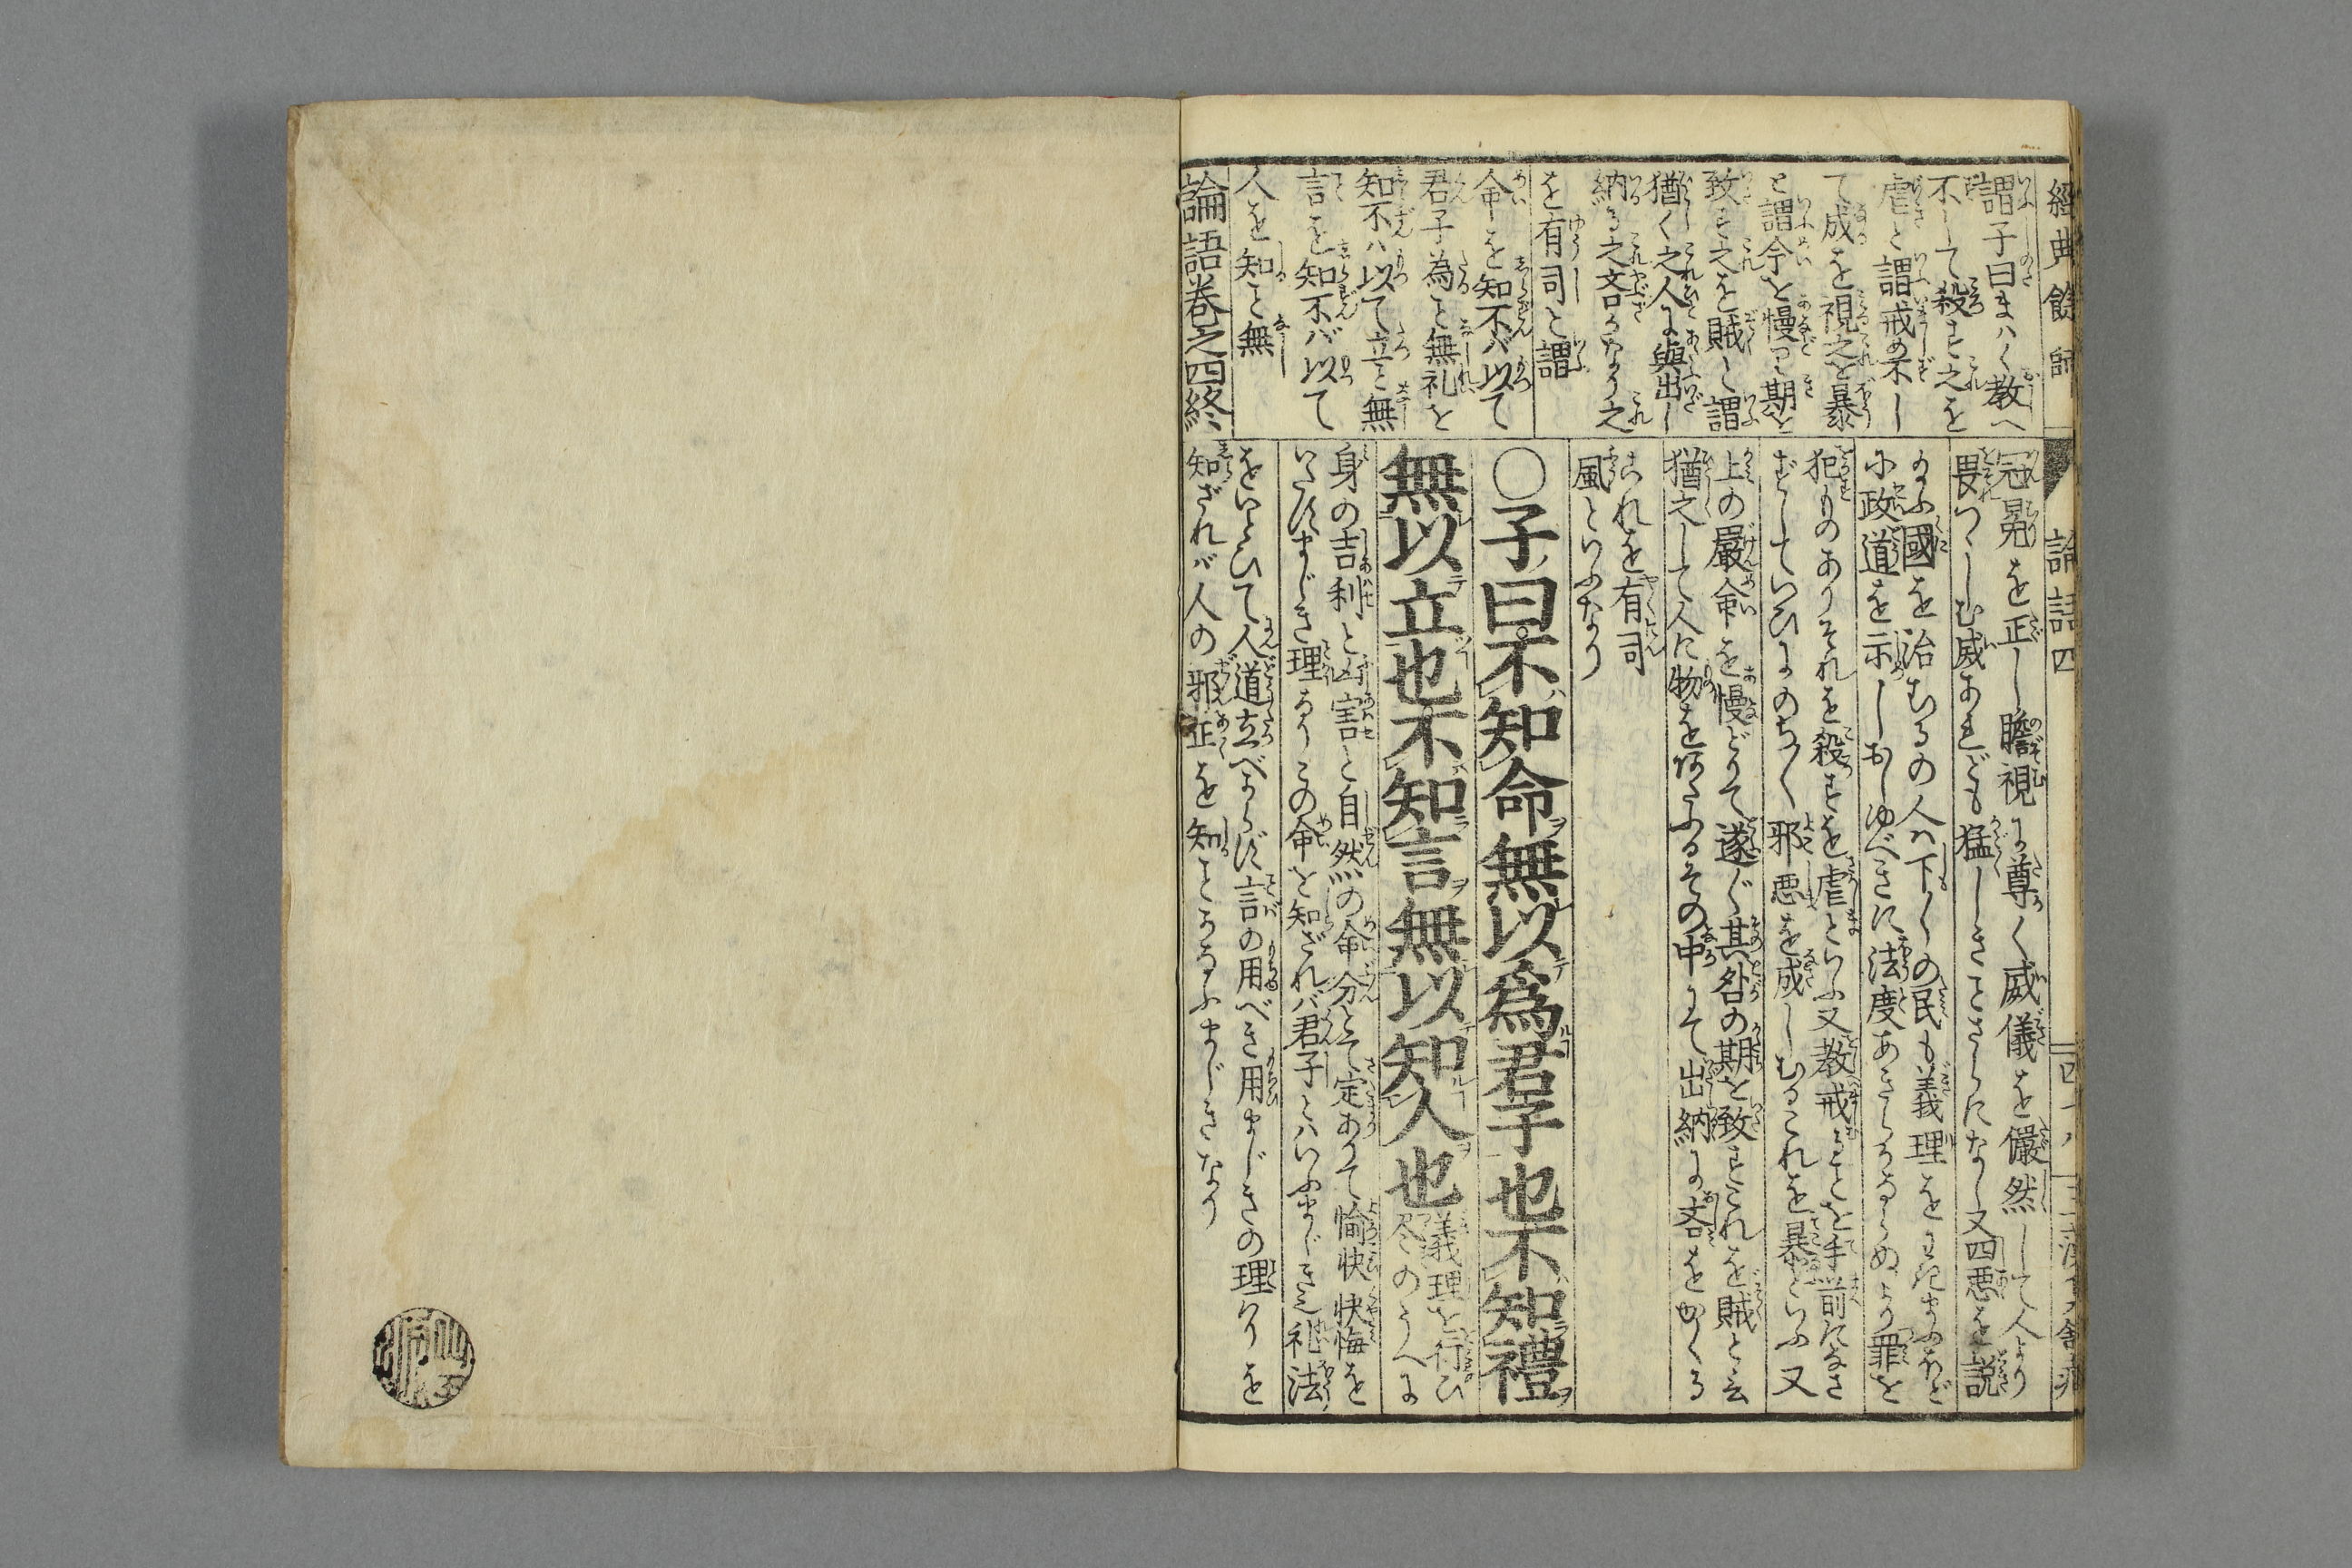 經典餘師
論語四
四十八
謂子曰まハく教へ
不して殺す之を
虐と謂戒め不し
て成を視之を暴
と謂令を慢りて期を
致す之を賊と謂
猶く之人よ與出し
納る之吝うなり之
を有司と謂
命を知不バ以て
君子為こと無礼を
知不ハ以て立と無
言を知不バ以て
人を知こと無
論語巻之四終
冠冕を正しし瞻視よ尊く威儀を儼然して人より
畏つゝしむ威あれども猛しきことさらになし又四悪を説
國を治むるの人ハ下〳〵の民も義理を
政道を示し べきに法度あきらか 罪を
犯ものありそれを殺すを虐といふ又教戒ことを手前になさ
ずして 邪悪を成しむるこれを暴といふ又
上の嚴命を慢どりて遂ぐ其名の期を致すこれを賊と云
猶之して人に物を その中よて出納よ吝を かくる
これを有司
風といふなり
〇子曰不知命無以為君子也不知禮
無以立也不知言無以知人也
義理を行ひ
尽のうへよ
身の吉利と凶害と自然の命分とて定ありて愉快快悔を
いたすまじき理なりこの命を知ざれバ君子とハいふまじき也礼法
をいとひて人道立べからず言の用べき用まじきの理りを
知ざれバ人の邪正を知ことあたふまじきなり